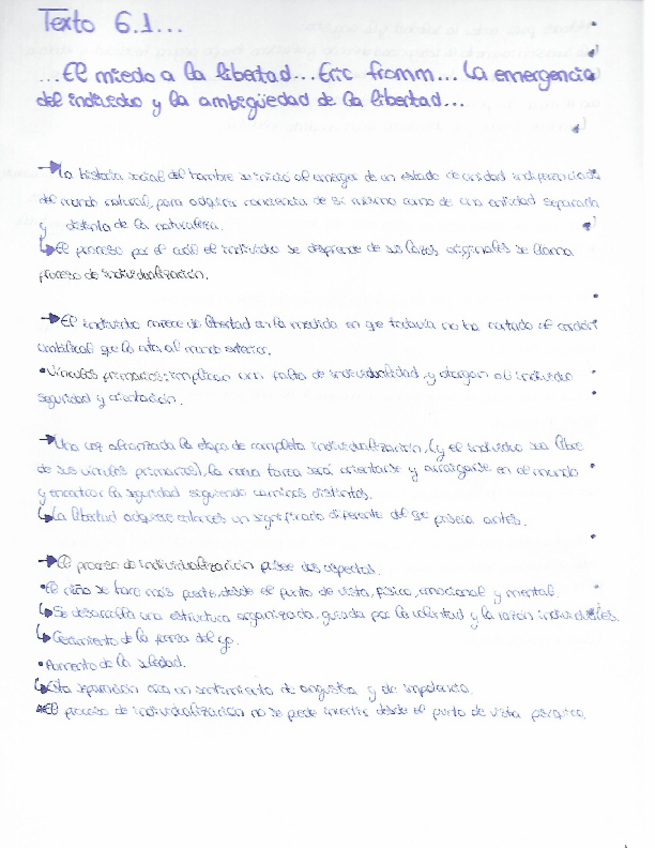 Texto 6.1...
...El miedo a la libertad... Eric fromm... La emergencia
del individuo y la ambigüedad de la libertad...
→La historia social del hombre se inició al emerger de un estado de unidad indiferenciada
del mundo natural, para adquirir conciencia de sí mismo como de una entidad separada
y distinta de la naturaleza.
↳El proceso por el cual el individuo se desprende de sus lazos originales se llama
proceso de individualización.
→El individuo carece de libertad en la medida en que todavía no ha cortado el cordón
umbilical que lo ata al mundo exterior.
•Vínculos primarios: implican una falta de individualidad, y otorgan al individuo
seguridad y orientación.
→Una vez alcanzada la etapa de completa individualización, (y el individuo sea libre
de sus vínculos primarios), la nueva tarea será orientarse y arraigarse en el mundo
y encontrar la seguridad siguiendo caminos distintos.
↳La libertad adquiere entonces un significado diferente del que poseía antes.
→El proceso de individualización posee dos aspectos.
•El niño se hace más fuerte, desde el punto de vista, físico, emocional y mental.
↳Se desarrolla una estructura organizada, guiada por la voluntad y la razón individuales.
↳Crecimiento de la fuerza del yo.
•Aumento de la soledad.
↳Esta separación crea un sentimiento de angustia y de impotencia.
*El proceso de individualización no se puede invertir desde el punto de vista psíquico.